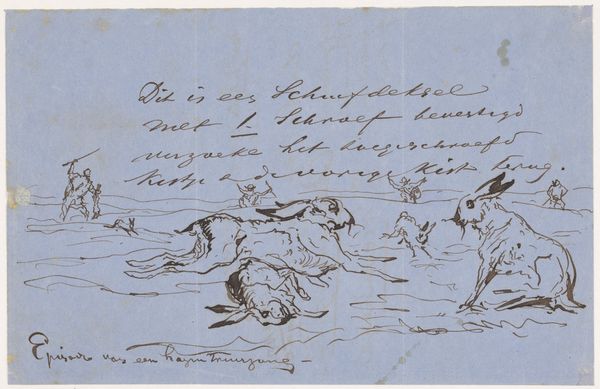 Dit is een Schuifdeksel
met 1. Schroef bevestigd
verzoeke het toegeschroefd
kistje de vorige kist terug.
Episode van een hazen